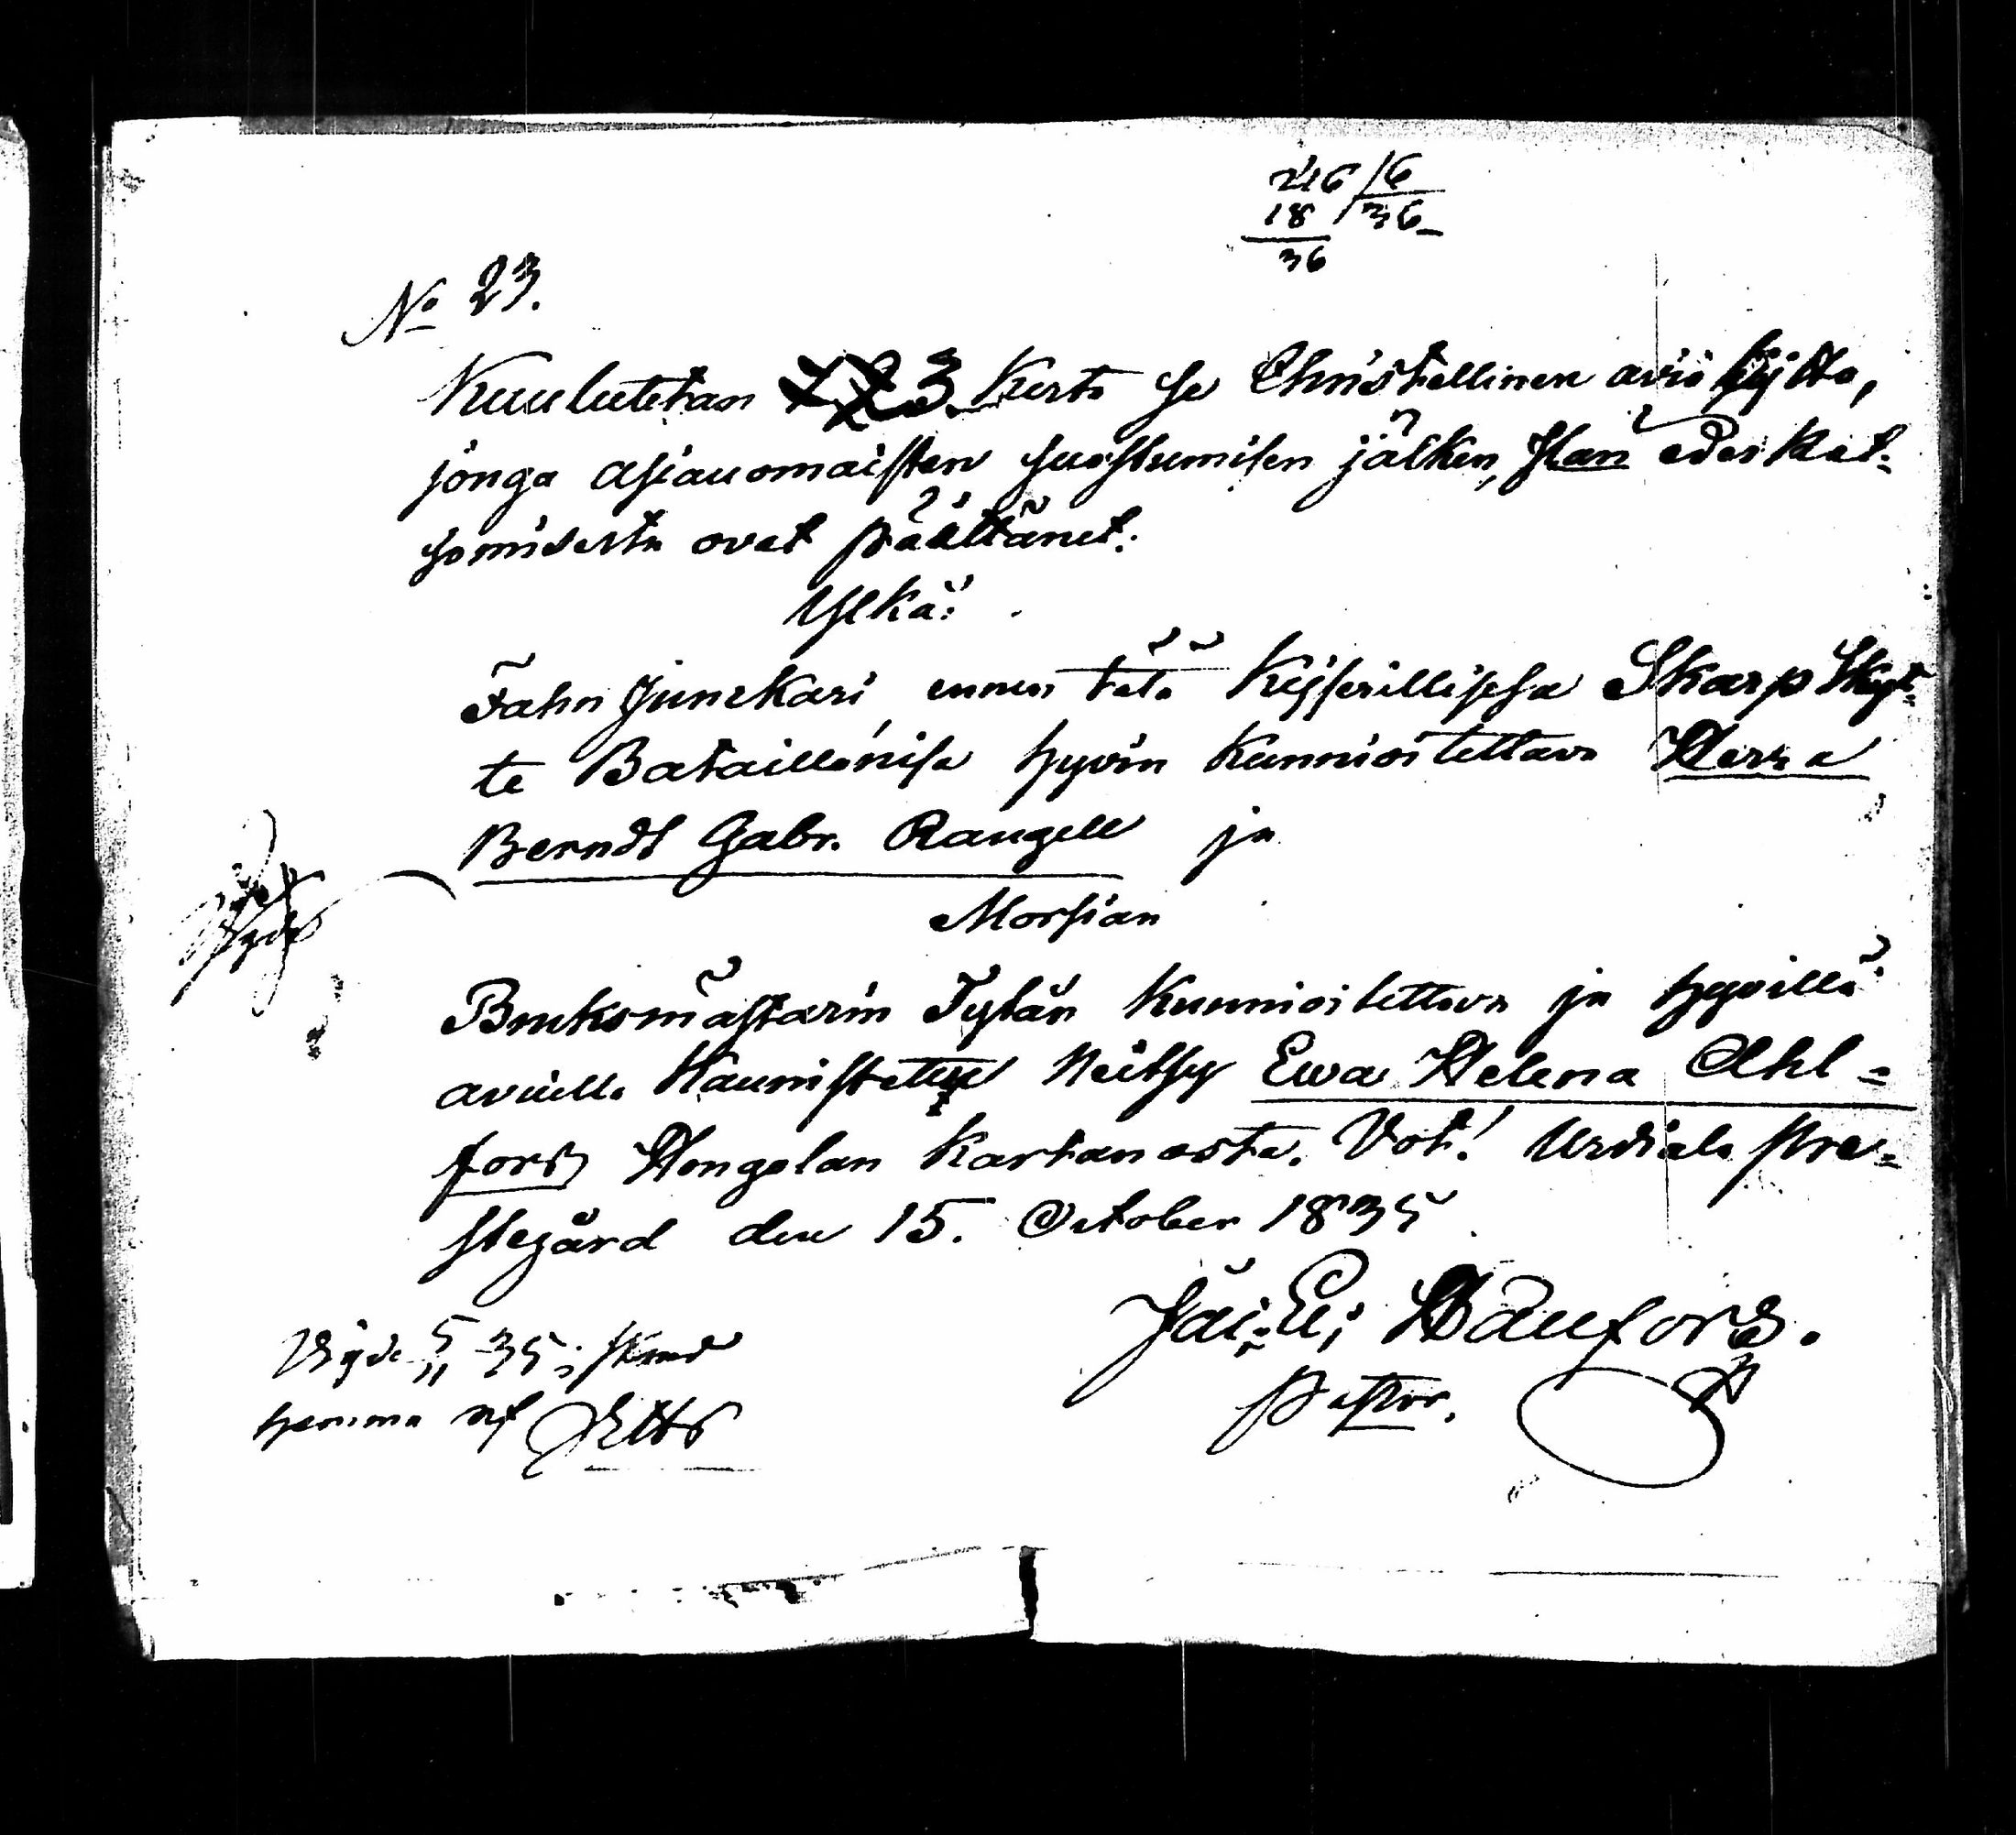 246 / 6
18 / 36
36
No 23.
Kuulutetan 1 2 3 Kerta se Christellinen avio käjtto,
jonga asianomaisten suostumisen jälken, Han edeskat-
somisesta ovat päättänet:
Ylkä:
Fahn Junckari, ennen tätä Kejserillisesä Skarp Skyt-
te Bataillonisa hyvin kunnioitettava Herra
Berndt Gabr. Rangell ja
Morsian
Bruksmästarin Tytär Kunnioitettava ja hyvillä
avuilla Kaunistettu Neitsy Ewa Helena Ahl-
fors Hongolan Kartanosta. Vot! Urdiala Pre-
stegård den 15. October 1835
Vigde 5/11 35 i
hemma af
Pastor.